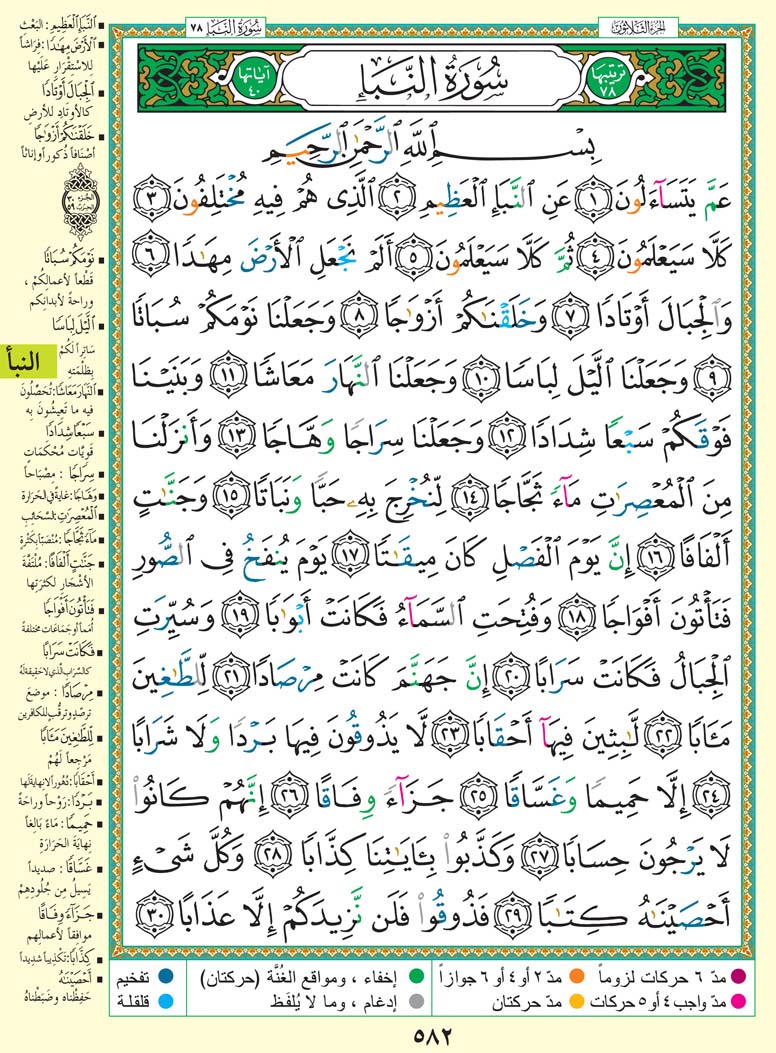 الجزء الثلاثون
سورة النبإ ٧٨
ترتيبها ٧٨
سُورَةُ النَّبَإِ
آياتها ٤٠
بِسْمِ ٱللَّهِ ٱلرَّحْمَٰنِ ٱلرَّحِيمِ
عَمَّ يَتَسَآءَلُونَ ١ عَنِ ٱلنَّبَإِ ٱلْعَظِيمِ ٢ ٱلَّذِى هُمْ فِيهِ مُخْتَلِفُونَ ٣
كَلَّا سَيَعْلَمُونَ ٤ ثُمَّ كَلَّا سَيَعْلَمُونَ ٥ أَلَمْ نَجْعَلِ ٱلْأَرْضَ مِهَٰدًا ٦
وَٱلْجِبَالَ أَوْتَادًا ٧ وَخَلَقْنَٰكُمْ أَزْوَٰجًا ٨ وَجَعَلْنَا نَوْمَكُمْ سُبَاتًا
٩ وَجَعَلْنَا ٱلَّيْلَ لِبَاسًا ١٠ وَجَعَلْنَا ٱلنَّهَارَ مَعَاشًا ١١ وَبَنَيْنَا
فَوْقَكُمْ سَبْعًا شِدَادًا ١٢ وَجَعَلْنَا سِرَاجًا وَهَّاجًا ١٣ وَأَنزَلْنَا
مِنَ ٱلْمُعْصِرَٰتِ مَآءً ثَجَّاجًا ١٤ لِّنُخْرِجَ بِهِۦ حَبًّا وَنَبَاتًا ١٥ وَجَنَّٰتٍ
أَلْفَافًا ١٦ إِنَّ يَوْمَ ٱلْفَصْلِ كَانَ مِيقَٰتًا ١٧ يَوْمَ يُنفَخُ فِى ٱلصُّورِ
فَتَأْتُونَ أَفْوَاجًا ١٨ وَفُتِحَتِ ٱلسَّمَآءُ فَكَانَتْ أَبْوَٰبًا ١٩ وَسُيِّرَتِ
ٱلْجِبَالُ فَكَانَتْ سَرَابًا ٢٠ إِنَّ جَهَنَّمَ كَانَتْ مِرْصَادًا ٢١ لِّلطَّٰغِينَ
مَـَٔابًا ٢٢ لَّٰبِثِينَ فِيهَآ أَحْقَابًا ٢٣ لَّا يَذُوقُونَ فِيهَا بَرْدًا وَلَا شَرَابًا
٢٤ إِلَّا حَمِيمًا وَغَسَّاقًا ٢٥ جَزَآءً وِفَاقًا ٢٦ إِنَّهُمْ كَانُوا۟
لَا يَرْجُونَ حِسَابًا ٢٧ وَكَذَّبُوا۟ بِـَٔايَٰتِنَا كِذَّابًا ٢٨ وَكُلَّ شَىْءٍ
أَحْصَيْنَٰهُ كِتَٰبًا ٢٩ فَذُوقُوا۟ فَلَن نَّزِيدَكُمْ إِلَّا عَذَابًا ٣٠
▪ النَّبَإِ العَظِيمِ: البَعْث
▪ الأَرْضَ مِهَٰدًا: فِرَاشاً
للاستقرار عَلَيْها
▪ الْجِبَالَ أَوْتَادًا
كالأوتَادِ للأرضِ
▪ خَلَقْنَٰكُمْ أَزْوَٰجًا
أصْنَافاً ذُكُوراً وإنَاثاً
الجزء ٣٠
الحزب ٥٩
▪ نَوْمَكُمْ سُبَاتًا
قَطْعاً لأعمالِكُمْ ،
وراحةً لأبدانِكم
▪ الَّيْلَ لِبَاسًا
سَاتِراً لَكُمْ
بِظُلْمَتِهِ
النبأ
▪ النَّهَارَ مَعَاشًا: تُحَصِّلُونَ
فيه ما تَعِيشُونَ به
▪ سَبْعًا شِدَادًا
قَوِيَّاتٍ مُحْكَمَاتٍ
▪ سِرَاجًا : مِصْبَاحاً
▪ وَهَّاجًا: غَايةً في الحَرَارة
▪ الْمُعْصِرَٰتِ: السَّحَائِبِ
▪ مَآءً ثَجَّاجًا: مُنْصَبّاً بكَثْرةٍ
▪ جَنَّٰتٍ أَلْفَافًا: مُلْتَفَّةَ
الأشْجَارِ لكثرَتِها
▪ فَتَأْتُونَ أَفْوَاجًا
أُمَماً أو جَمَاعَات مختلفة
▪ فَكَانَتْ سَرَابًا
كالسَّرَاب الَّذي لا حَقِيقة لَهُ
▪ مِرْصَادًا : موضعَ
ترصُّدٍ وترقُّبٍ للكافرين
▪ لِلطَّٰغِينَ مَـَٔابًا
مَرْجِعاً لَهُمْ
▪ أَحْقَابًا: دُهُوراً لا نِهَايَةَ لها
▪ بَرْدًا: رَوْحاً وراحَةً
▪ حَمِيمًا: مَاءً بَالغاً
نِهَايةَ الحَرَارَةِ
▪ غَسَّاقًا: صديداً
يَسِيلُ مِن جُلُودِهِمْ
▪ جَزَآءً وِفَاقًا
موافقاً لأعمالِهِم
▪ كِذَّابًا: تَكْذِيباً شديداً
▪ أَحْصَيْنَٰهُ
حَفِظْنَاه وضَبَطْناهُ
مدّ ٦ حركات لزوماً
مدّ ٢ أو ٤ أو ٦ جوازاً
إخفاء ، ومواقع الغُنَّة (حركتان)
تفخيم
مدّ واجب ٤ أو ٥ حركات
مدّ حركتان
إدغام ، وما لا يُلفَظ
قلقلة
٥٨٢